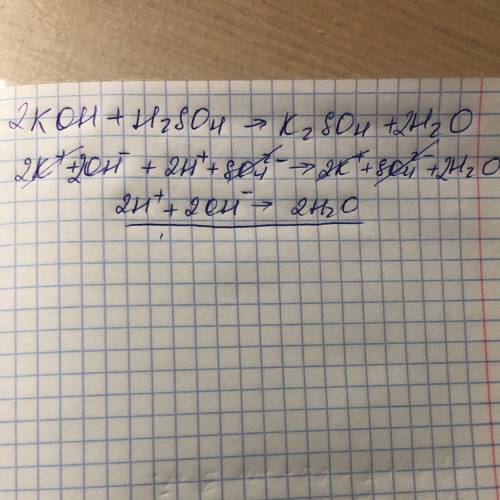 2KOH + H₂SO₄ → K₂SO₄ + 2H₂O
2K⁺ + 2OH⁻ + 2H⁺ + SO₄²⁻ → 2K⁺ + SO₄²⁻ + 2H₂O
2H⁺ + 2OH⁻ → 2H₂O